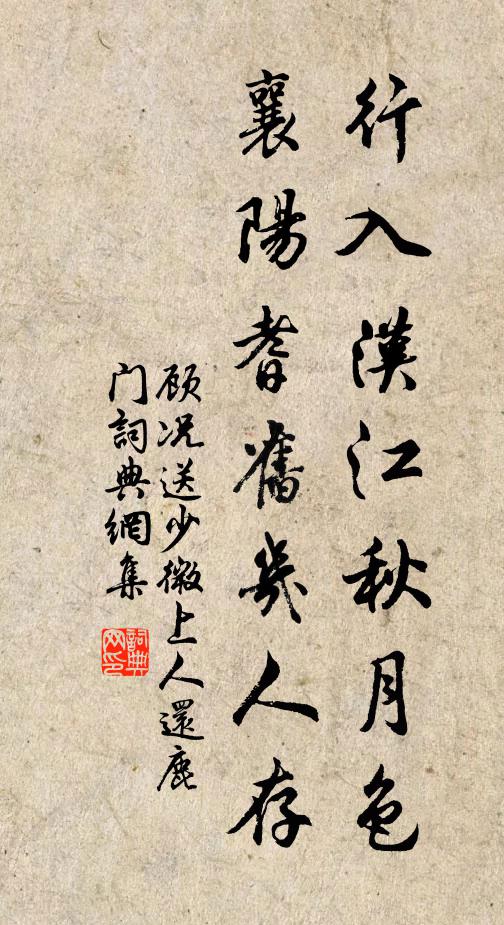 行入漢江秋月色
襄陽耆舊幾人存
顾况送少微上人還鹿
门詞典網集
詞典
网印